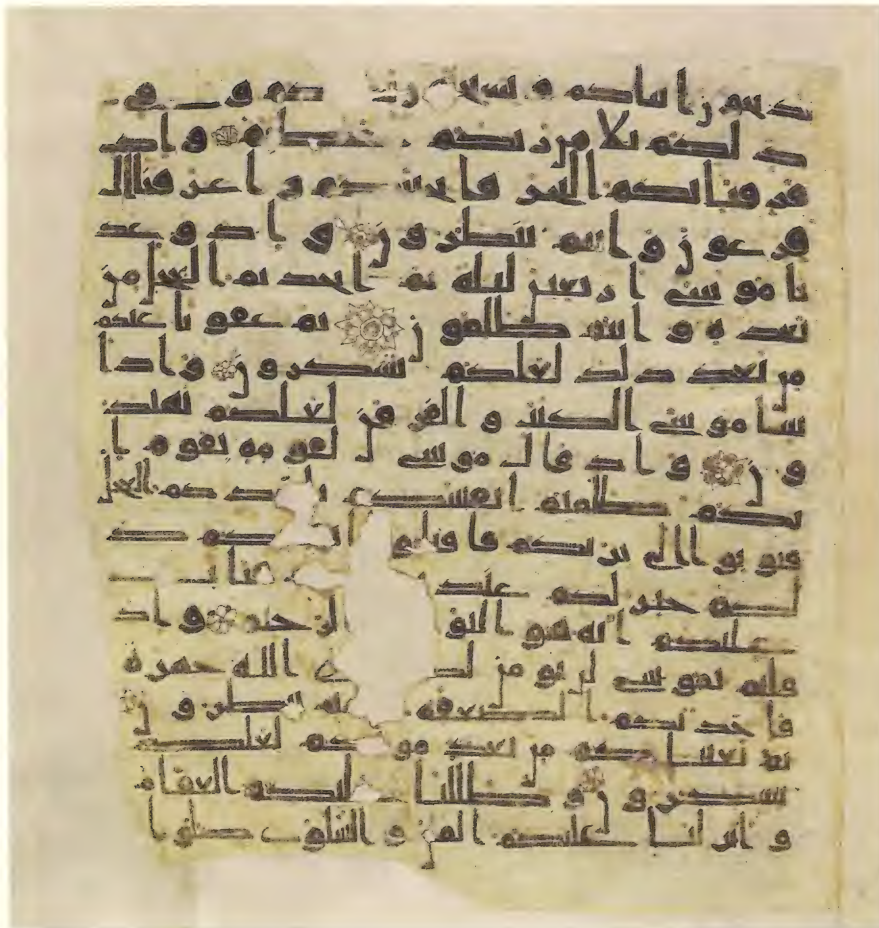 ذبحون ابناكم و يستحيون نساكم و في
ذلكم بلا من ربكم عظيم و اذ
فرقنا بكم البحر فانجينكم و اغرقنا ال
فرعون و انتم تنظرون و اذ وعد
نا موسى اربعين ليلة ثم اتخذتم العجل من
بعده و انتم ظلمون ثم عفونا عنكم
من بعد ذلك لعلكم تشكرون و اذ ا
تينا موسى الكتب و الفرقن لعلكم تهتد
ون و اذ قال موسى لقومه يقوم ا
نكم ظلمتم انفسكم باتخاذكم العجل
فتوبوا الى باريكم فاقتلوا انفسكم ذ
لكم خير لكم عند فتاب
عليكم انه هو التواب الرحيم و اذ
قلتم يموسى لن نومن لك الله جهرة
فاخذتكم الصعقة و انتم تنظرون
ثم بعثناكم من بعد موتكم لعلكم
تشكرون و ظللنا عليكم الغمام
و انزلنا عليكم المن و السلوى كلوا